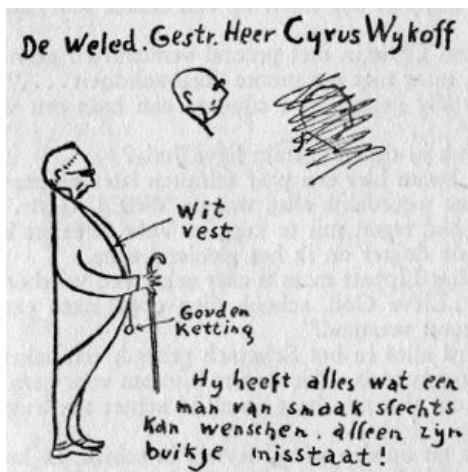 De Weled. Gestr. Heer Cyrus Wykoff
Wit
vest
Gouden
Ketting
Hy heeft alles wat een
man van smaak slechts
Kan wenschen. alleen zyn
buikje misstaat!